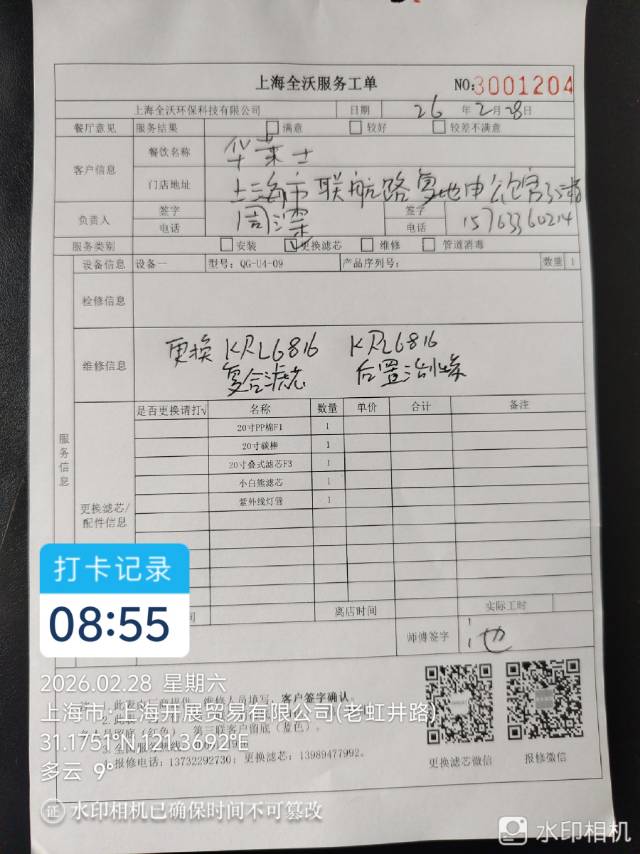 上海全沃服务工单 NO:3001204
上海全沃环保科技有限公司 日期 26 年 2 月 28 日
餐厅意见 服务结果 满意 较好 较差不满意
客户信息
餐饮名称 华莱士
门店地址 上海市联航路复地申公馆
负责人 签字 周 签字
电话 电话 15763360214
服务类别 安装 更换滤芯 维修 管道消毒
设备信息 设备一 型号:QG-U4-09 产品序列号: 数量 1
检修信息
维修信息
更换 KRL6816 KRL6816
复合滤芯 后置
服务信息
更换滤芯/
配件信息
是否更换请打√ 名称 数量 单价 合计 备注
20寸PP棉F1 1
20寸碳棒 1
20寸叠式滤芯F3 1
小白熊滤芯 1
紫外线灯管 1
间 离店时间 实际工时
师傅签字 池
打卡记录
08:55
2026.02.28 星期六
上海市·上海开展贸易有限公司(老虹井路)
31.1751°N,121.3692°E
多云 9°
维修人员填写,客户签字确认。
(红色),第三联客户留底(蓝色)。
报修电话:13732292730;更换滤芯:13989477992.
更换滤芯微信 报修微信
证 水印相机已确保时间不可篡改
水印相机